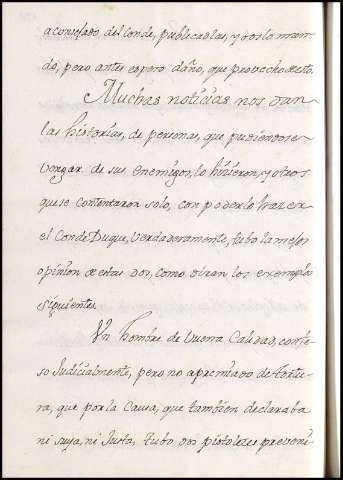 aconsejado, del Conde, publicarlas, y os lo man-
do, pero antes espero daño, que provecho de esto.
Muchas noticias nos dan
las historias, de personas, que pudiendose
vengar de sus enemigos, lo hizieron, y otros
que se contentaron solo, con poderlo hazer
el Conde Duque, verdaderamente, tubo la mejor
opinion de estas dos, como diran los exemplos
siguientes.
Un hombre de buena Calidad, confe-
so Judicialmente, pero no apremiado de tortu-
ra, que por la Causa, que tambien declaraba
ni suya, ni Justa, tubo dos pistoletes preveni-